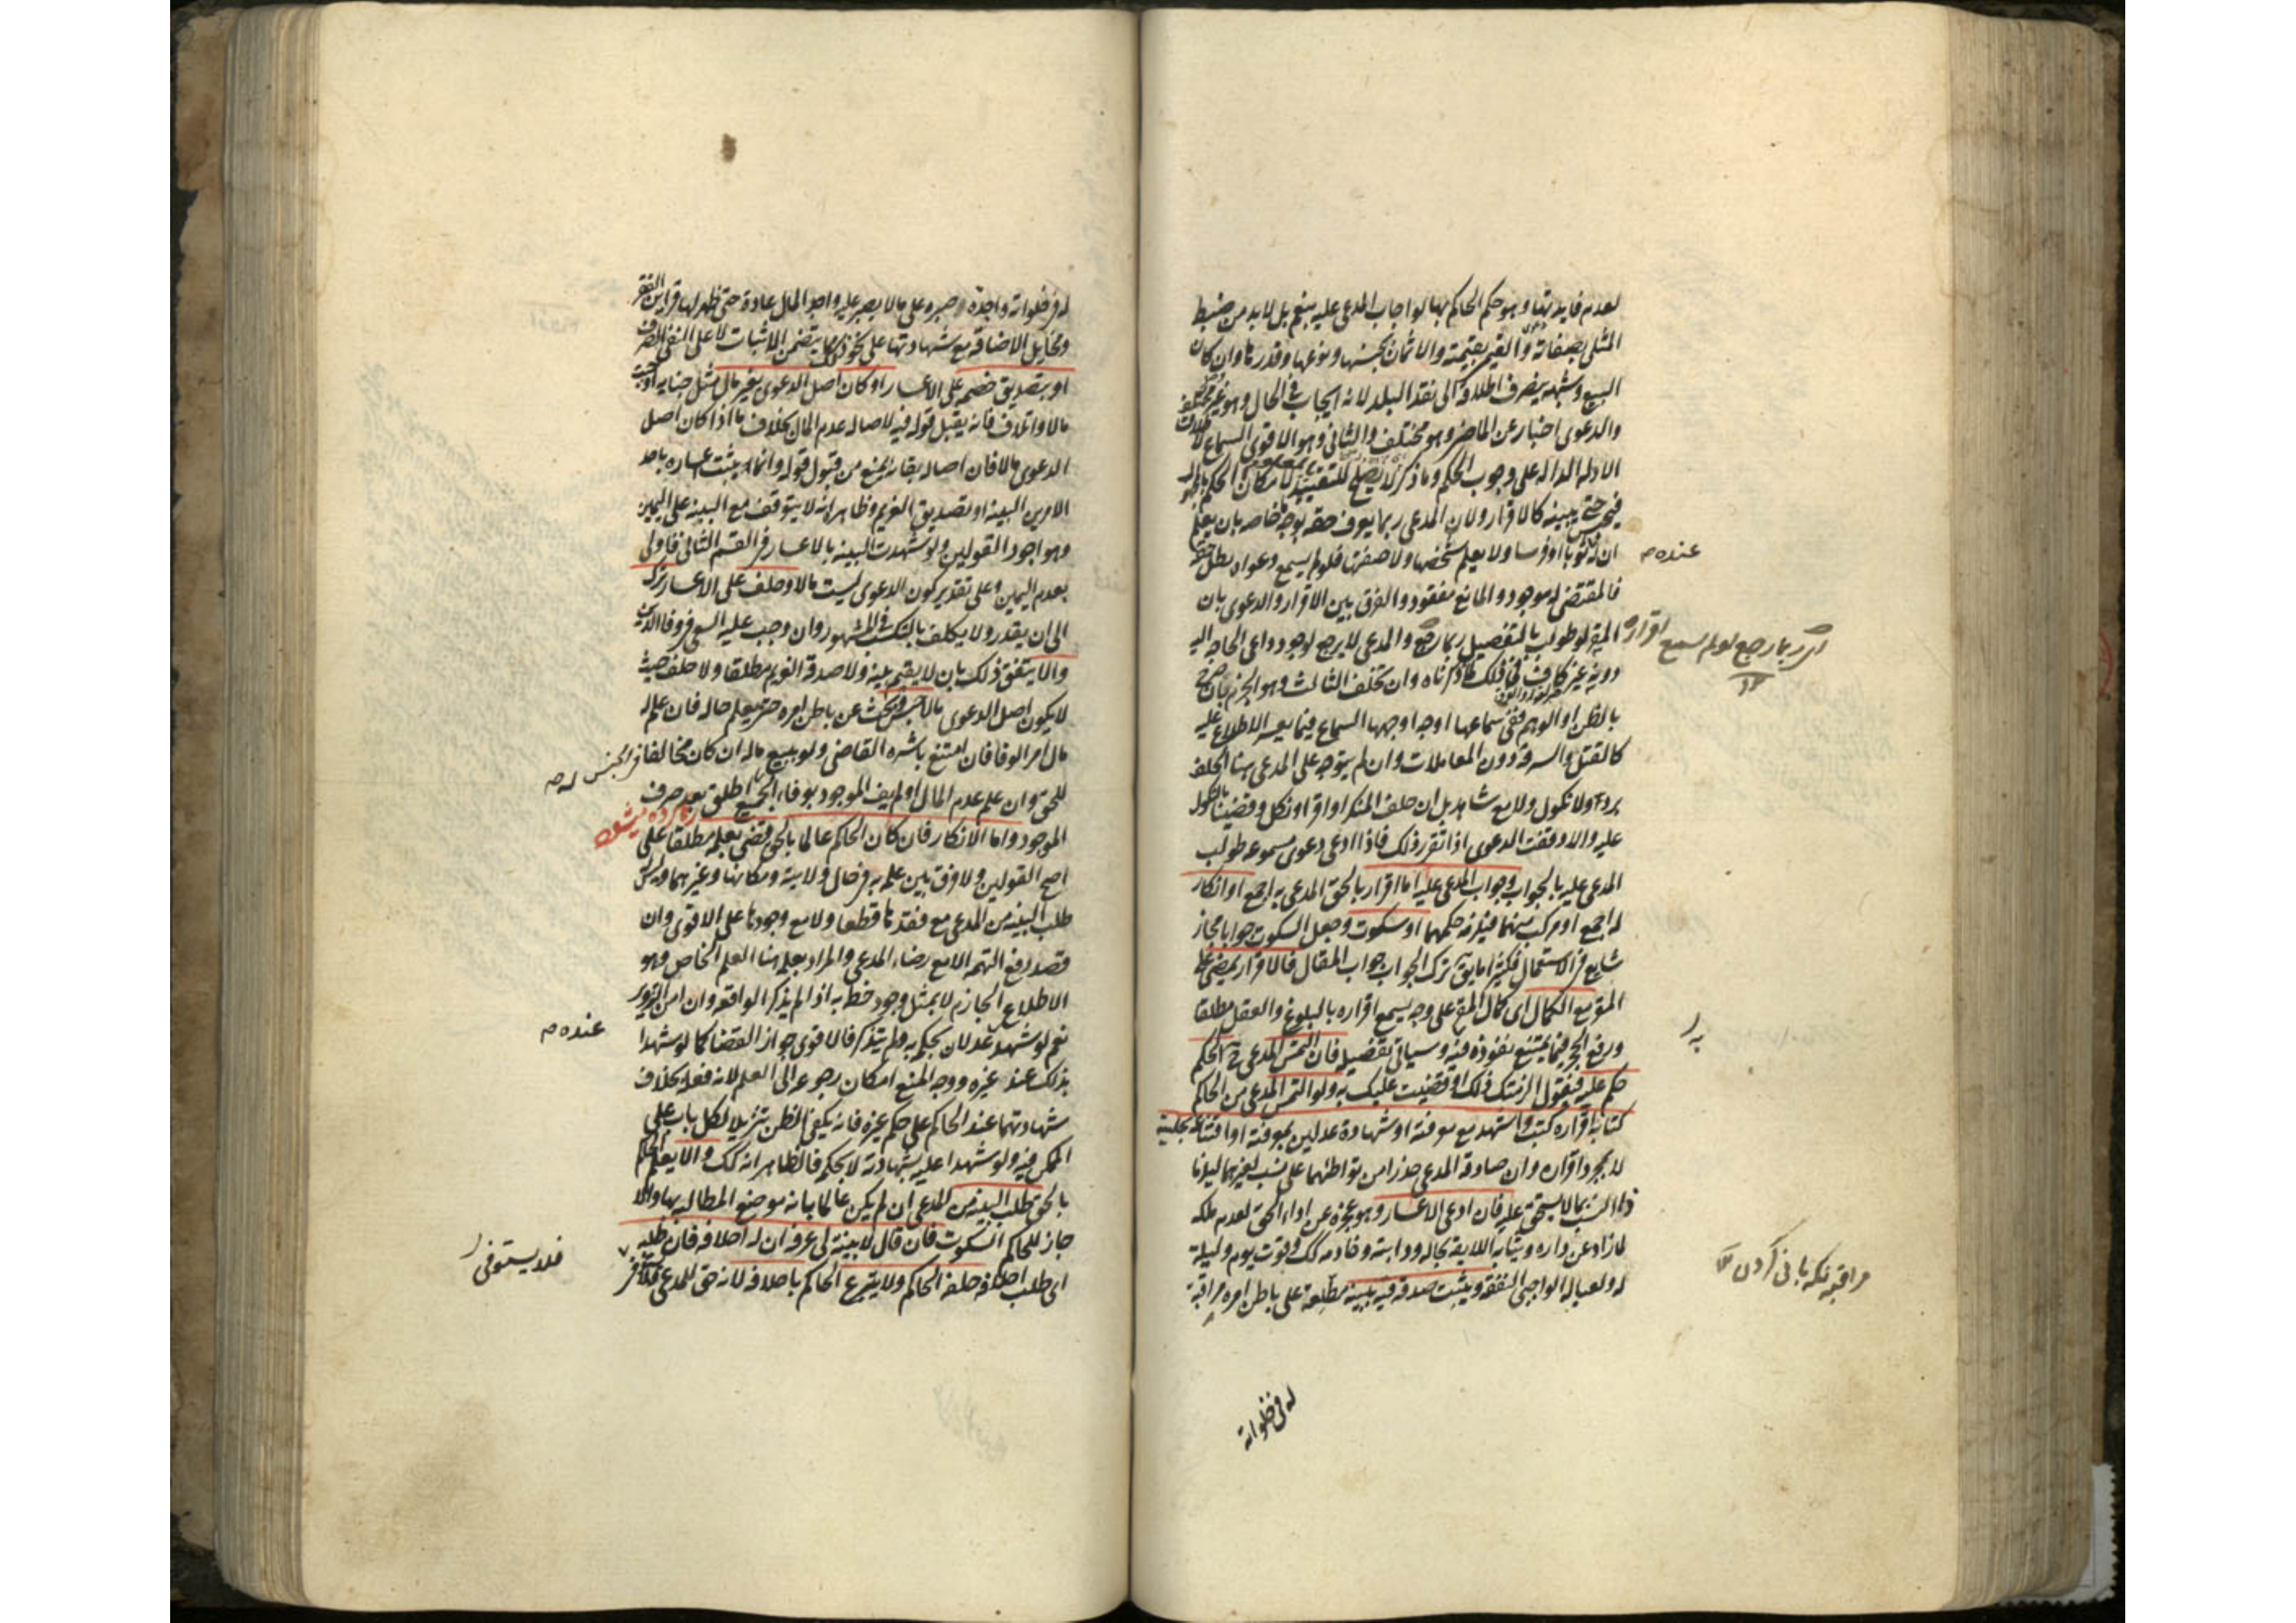 لعدم فايدتها و هو حكم الحاكم بها لو اجاب المدعى عليه بنعم بل لابد من ضبط
المثلى بصفاته و القيمى بقيمته و الاثمان بجنسها و نوعها و قدرها و ان كان
البيع و شبهه ينصرف اطلاقه الى نقد البلد لانه ايجاب فى الحال و هو غير مختلف
و الدعوى اخبار عن الماضى و هو مختلف و الثانى و هو الاقوى السماع لاطلاق
الادلة الدالة على وجوب الحكم و ما ذكر لا يصلح للتقييد لامكان الحكم بالمجهول
فيحبس حتى يبينه كالاقرار و لان المدعى ربما يعرف حقه بوجه خاصه بان يعلم
ان له ثوبا او فرسا و لا يعلم شخصها و لا صفتها فلو لم يسمع دعواه بطل حقه
عنده
فالمقتضى له موجود و المانع مفقود و الفرق بين الاقرار و الدعوى بان
المقر لو طولب بالتفصيل ربما رجع و المدعى لا يرجع لوجود داعى الحاجة اليه
ربما رجع لو لم يسمع اقراره
دونه غير كاف فى ذلك لما ذكرناه و ان تخلف الثالث و هو الجزم بان صرح
بالظن او الوهم ففى سماعها اوجه اوجهها السماع فيما يعسر الاطلاع عليه
كالقتل و السرقة دون المعاملات و ان لم يتوجه على المدعى هنا الحلف
برد و لا نكول و لا مع شاهد بل ان حلف المنكر او اقر او نكل و قضينا بالنكول
عليه و الا وقفت الدعوى اذا تقرر ذلك فاذا ادعى دعوى مسموعة طولب
المدعى عليه بالجواب و جواب المدعى عليه اما اقرار بالحق المدعى به اجمع او انكار
له اجمع او مركب منهما فيلزمه حكمهما او سكوت و جعل السكوت جوابا مجاز
شايع فى الاستعمال فكثيرا ما يق ترك الجواب جواب المقال فالاقرار يمضى على
المقر مع الكمال اى كمال المقر على وجه يسمع اقراره بالبلوغ و العقل مطلقا
و رفع الحجر فيما يمتنع نفوذه فيه و سياتى تفصيله فان التمس المدعى ح الحكم
به
حكم عليه فيقول الزمتك ذلك او قضيت عليك به و لو التمس المدعى من الحاكم
كتابة اقراره كتب و اشهد مع معرفته او شهادة عدلين بمعرفته او اقتناعه بحليته
لا بمجرد اقراره و ان صادقه المدعى حذرا من تواطئهما على نسب لغيرهما ليلزما
ذا النسب بما لا يستحق عليه فان ادعى الاعسار و هو عجزه عن اداء الحق لعدم ملكه
لما زاد عن داره و ثيابه اللايقة بحاله و دابته و خادمه كك و قوت يوم و ليلة
له و لعياله الواجبى النفقة و يثبت صدقه فيه ببينة مطلعة على باطن امره مراقبة
مراقبه نگه بانى كردن
له فى خلواته
له فى خلواته واجدة صبره على ما لا يصبر عليه واجد المال عادة حتى ظهر لها قراين الفقر
و مخايل الاضاقة مع شهادتها على نحو ذلك بما يتضمن الاثبات لا على النفى الصرف
او بتصديق خصمه على الاعسار او كان اصل الدعوى بغير مال مثل جناية اوجبت
مالا و اتلاف فانه يقبل قوله فيه لاصالة عدم المال بخلاف ما اذا كان اصل
الدعوى مالا فان اصالة بقائه يمنع من قبول قوله و انما يثبت اعساره باحد
الامرين البينة او تصديق الغريم و ظاهره انه لا يتوقف مع البينة على اليمين
و هو اجود القولين و لو شهدت البينة بالاعسار فى القسم الثانى فاولى
بعدم اليمين و على تقدير كون الدعوى ليست مالا و حلف على الاعسار ترك
الى ان يقدر و لا يكلف بالتكسب فى المشهور و ان وجب عليه السعى فى وفا الدين
و الا يتفق ذلك بان لا يقيم بينة و لا صدقه الغريم مطلقا و لا حلف حيث
لا يكون اصل الدعوى مالا حبس و بحث عن باطن امره حتى يعلم حاله فان علم له
مال امر بالوفا فان امتنع باشره القاضى و لو ببيع ماله ان كان مخالفا فى الجنس
للحق و ان علم عدم المال او لم يف الموجود بوفاء الجميع اطلق بعد صرف
الموجود و اما الانكار فان كان الحاكم عالما بالحق قضى بعلمه مطلقا على
اصح القولين و لا فرق بين علمه به فى حال ولايته و مكانها و غيرهما و ليس
طلب البينة من المدعى مع فقدها قطعا و لا مع وجودها على الاقوى و ان
قصد دفع التهمة الا مع رضاء المدعى و المراد بعلمه هنا العلم الخاص و هو
الاطلاع الجازم لا بمثل وجود خطه به اذا لم يذكر الواقعة و ان امن التزوير
نعم لو شهد عدلان بحكمه به و لم يتذكر فالاقوى جواز القضا كما لو شهدا
عنده
بذلك عند غيره و وجه المنع امكان رجوعه الى العلم لانه فعله بخلاف
شهادتهما عند الحاكم على حكم غيره فانه يكفى الظن تنزيلا لكل باب على
الممكن فيه و لو شهدا عليه بشهادته لا بحكمه فالظاهر انه كك و الا يعلم الحاكم
بالحق طلب البينة من المدعى ان لم يكن عالما بانه موضع المطالبة بها و الا
جاز للحاكم السكوت فان قال لا بينة لى عرفه ان له احلافه فان طلبه
اى طلب احلافه حلفه الحاكم و لا يتبرع الحاكم باحلافه لانه حق للمدعى
فلا يستوفى